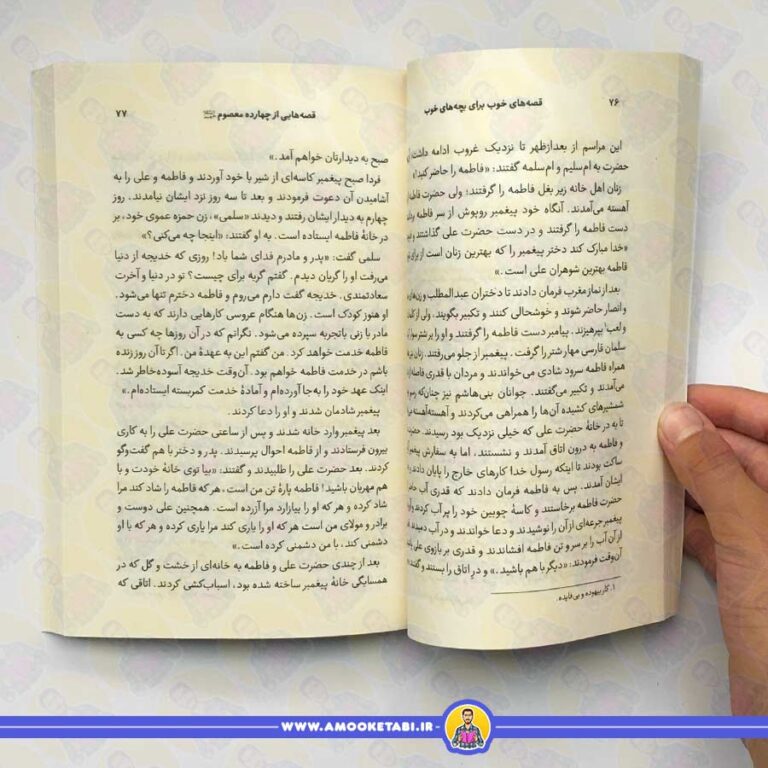 ۷۶ قصه‌های خوب برای بچه‌های خوب
این مراسم از بعدازظهر تا نزدیک غروب ادامه داشت.
حضرت به ام‌سلیم و ام‌سلمه گفتند: «فاطمه را حاضر کنید!»
زنان اهل خانه زیر بغل فاطمه را گرفتند؛ ولی حضرت فاطمه
آهسته می‌آمدند. آنگاه خود پیغمبر روپوش از سر فاطمه
دست فاطمه را گرفتند و در دست حضرت علی گذاشتند و
«خدا مبارک کند دختر پیغمبر را که بهترین زنان است از برای
فاطمه بهترین شوهران علی است.»
بعد از نماز مغرب فرمان دادند تا دختران عبدالمطلب و زن‌های
و انصار حاضر شوند و خوشحالی کنند و تکبیر بگویند. ولی از
و لعب۱ بپرهیزند. پیامبر دست فاطمه را گرفتند و او را بر شتر سوار
سلمان فارسی مهار شتر را گرفت. پیغمبر از جلو می‌رفتند. زنان نیز
همراه فاطمه سرود شادی می‌خواندند و مردان با قدری فاصله
می‌آمدند و تکبیر می‌گفتند. جوانان بنی‌هاشم نیز چنان‌که رسم
شمشیرهای کشیده آن‌ها را همراهی می‌کردند و آهسته‌آهسته
تا به در خانهٔ حضرت علی که خیلی نزدیک بود رسیدند.
و فاطمه به درون اتاق آمدند و نشستند، اما به سفارش پیغمبر
ساکت بودند تا اینکه رسول خدا کارهای خارج را پایان دادند
ایشان آمدند. پس به فاطمه فرمان دادند که قدری آب
حضرت فاطمه برخاستند و کاسهٔ چوبین خود را پر آب کردند و
پیغمبر جرعه‌ای از آن را نوشیدند و دعا خواندند و در آب دمیدند.
از آن آب را بر سر و تن فاطمه افشاندند و قدری بر بازوی علی
آن‌وقت فرمودند: «دیگر با هم باشید.» و در اتاق را بستند و گفتند
۱. کار بیهوده و بی‌فایده.
قصه‌هایی از چهارده معصوم ۷۷
صبح به دیدارتان خواهم آمد.»
فردا صبح پیغمبر کاسه‌ای از شیر با خود آوردند و فاطمه و علی را به
آشامیدن آن دعوت فرمودند و بعد تا سه روز نزد ایشان نیامدند. روز
چهارم به دیدار ایشان رفتند و دیدند «سلمی»، زن حمزه عموی خود، بر
در خانهٔ فاطمه ایستاده است. به او گفتند: «اینجا چه می‌کنی؟»
سلمی گفت: «پدر و مادرم فدای شما باد! روزی که خدیجه از دنیا
می‌رفت او را گریان دیدم. گفتم گریه برای چیست؟ تو در دنیا و آخرت
سعادتمندی. خدیجه گفت دارم می‌روم و فاطمه دخترم تنها می‌شود.
او هنوز کودک است. زن‌ها هنگام عروسی کارهایی دارند که به دست
مادر یا زنی باتجربه سپرده می‌شود. نگرانم که در آن روزها چه کسی به
فاطمه خدمت خواهد کرد. من گفتم این به عهدهٔ من. اگر تا آن روز زنده
باشم در خدمت فاطمه خواهم بود. آن‌وقت خدیجه آسوده‌خاطر شد.
اینک عهد خود را به‌جا آورده‌ام و آمادهٔ خدمت کمربسته ایستاده‌ام.»
پیغمبر شادمان شدند و او را دعا کردند.
بعد پیغمبر وارد خانه شدند و پس از ساعتی حضرت علی را به کاری
بیرون فرستادند و از فاطمه احوال پرسیدند. پدر و دختر با هم گفت‌وگو
کردند. بعد حضرت علی را طلبیدند و گفتند: «بیا توی خانهٔ خودت و با
هم مهربان باشید! فاطمه پارهٔ تن من است، هر که فاطمه را شاد کند مرا
شاد کرده و هر که او را بیازارد مرا آزرده است. همچنین علی دوست و
برادر و مولای من است هر که او را یاری کند مرا یاری کرده و هر که با او
دشمنی کند، با من دشمنی کرده است.»
بعد از چندی حضرت علی و فاطمه به خانه‌ای از خشت و گل که در
همسایگی خانهٔ پیغمبر ساخته شده بود، اسباب‌کشی کردند. اتاقی که
WWW.AMOOKETABI.IR